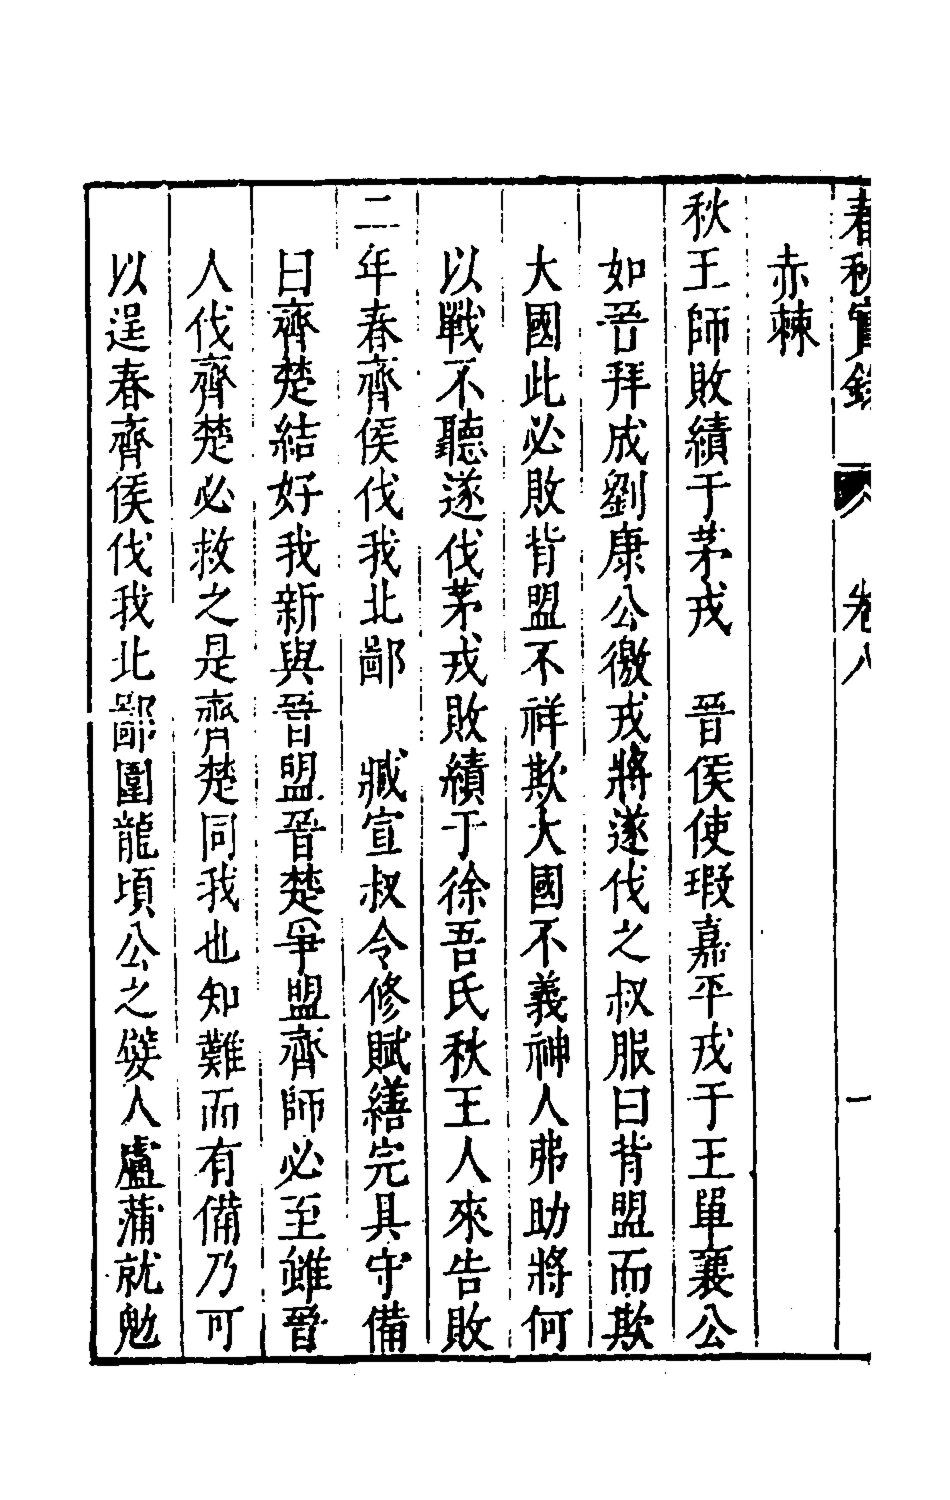 春秋實錄 卷八 一
赤棘
秋王師敗績于茅戎 晉侯使瑕嘉平戎于王單襄公
如晉拜成劉康公徼戎將遂伐之叔服曰背盟而欺
大國此必敗背盟不祥欺大國不義神人弗助將何
以戰不聽遂伐茅戎敗績于徐吾氏秋王人來告敗
二年春齊侯伐我北鄙 臧宣叔令修賦繕完具守備
曰齊楚結好我新與晉盟晉楚爭盟齊師必至雖晉
人伐齊楚必救之是齊楚同我也知難而有備乃可
以逞春齊侯伐我北鄙圍龍頃公之嬖人盧蒲就魁